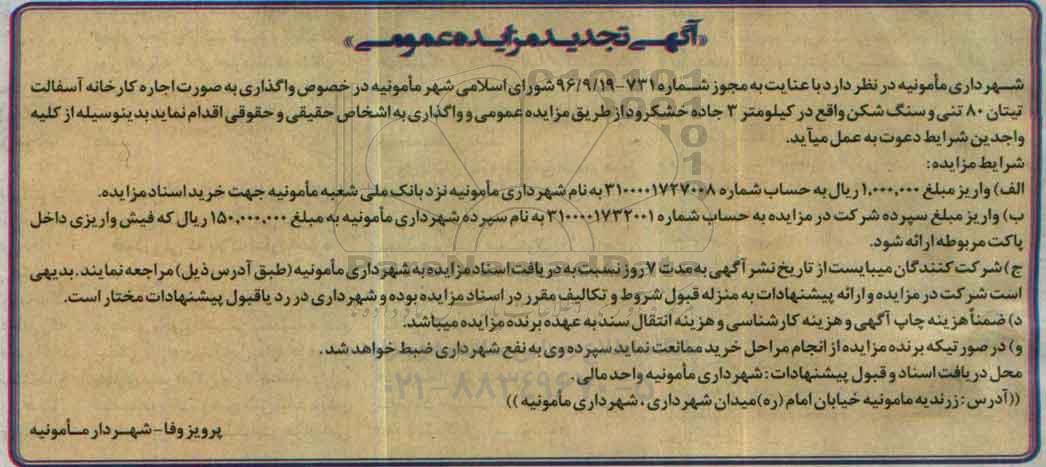 «آگهی تجدید مزایده عمومی»
شهرداری مأمونیه در نظر دارد با عنایت به مجوز شماره ۷۳۱-۹۶/۹/۱۹ شورای اسلامی شهر مأمونیه در خصوص واگذاری به صورت اجاره کارخانه آسفالت
تیتان ۸۰ تنی و سنگ شکن واقع در کیلومتر ۳ جاده خشکرود از طریق مزایده عمومی و واگذاری به اشخاص حقیقی و حقوقی اقدام نماید بدینوسیله از کلیه
واجدین شرایط دعوت به عمل میآید.
شرایط مزایده:
الف) واریز مبلغ ۱,۰۰۰,۰۰۰ ریال به حساب شماره ۳۱۰۰۰۰۱۷۲۷۰۰۸ به نام شهرداری مأمونیه نزد بانک ملی شعبه مأمونیه جهت خرید اسناد مزایده.
ب) واریز مبلغ سپرده شرکت در مزایده به حساب شماره ۳۱۰۰۰۰۱۷۳۲۰۰۱ به نام سپرده شهرداری مأمونیه به مبلغ ۱۵۰,۰۰۰,۰۰۰ ریال که فیش واریزی داخل
پاکت مربوطه ارائه شود.
ج) شرکت کنندگان میبایست از تاریخ نشر آگهی به مدت ۷ روز نسبت به دریافت اسناد مزایده به شهرداری مأمونیه (طبق آدرس ذیل) مراجعه نمایند. بدیهی
است شرکت در مزایده و ارائه پیشنهادات به منزله قبول شروط و تکالیف مقرر در اسناد مزایده بوده و شهرداری در رد یا قبول پیشنهادات مختار است.
د) ضمناً هزینه چاپ آگهی و هزینه کارشناسی و هزینه انتقال سند به عهده برنده مزایده میباشد.
و) در صورتیکه برنده مزایده از انجام مراحل خرید ممانعت نماید سپرده وی به نفع شهرداری ضبط خواهد شد.
محل دریافت اسناد و قبول پیشنهادات: شهرداری مأمونیه واحد مالی.
((آدرس: زرندیه مامونیه خیابان امام (ره) میدان شهرداری، شهرداری مأمونیه))
پرویز وفا - شهردار مأمونیه
ParsNamadData